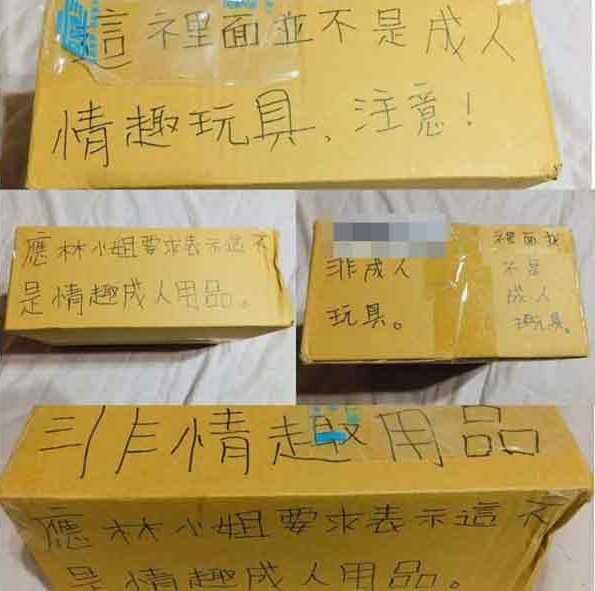 這裡面並不是成人
情趣玩具,注意!
應林小姐要求表示這不
是情趣成人用品。
非成人
玩具。
裡面並
不是
成人
玩具。
非情趣用品
應林小姐要求表示這不
是情趣成人用品。